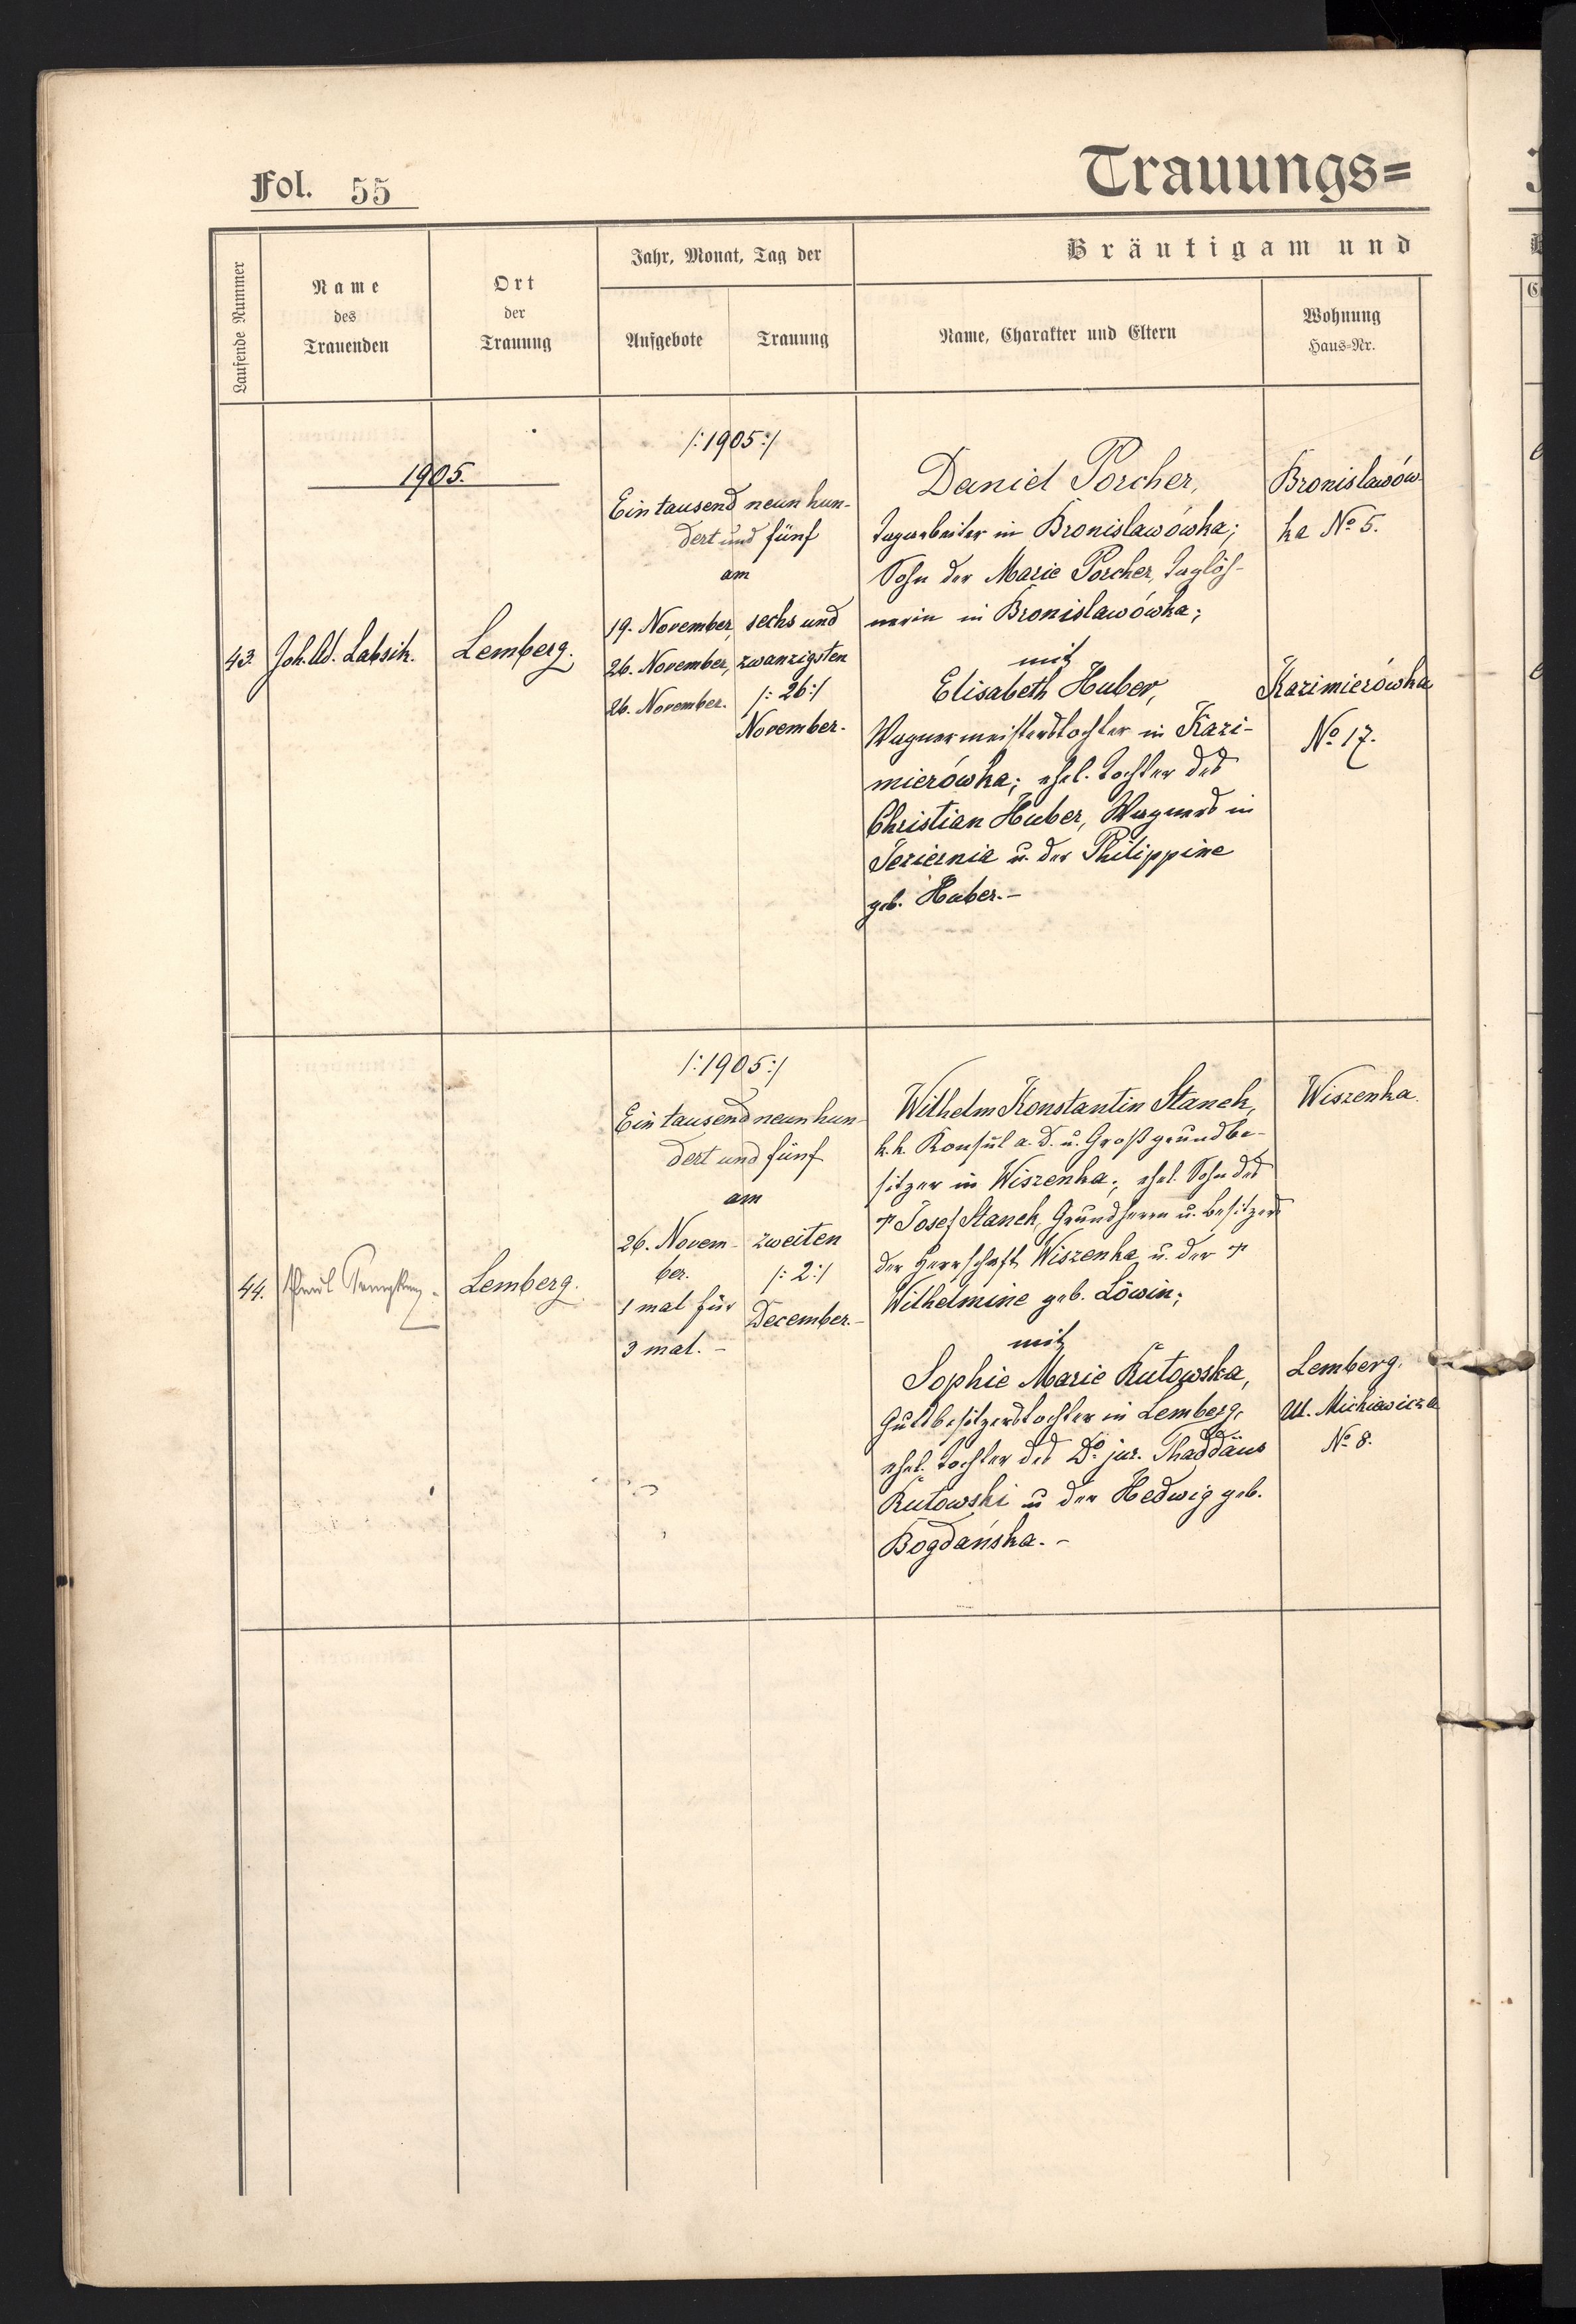 Fol. 55
Trauungs=
Laufende Nummer
Name
des
Trauenden
Ort
der
Trauung
Jahr, Monat, Tag der
Aufgebote
Trauung
Bräutigam und
Name, Charakter und Eltern
Wohnung
Haus=Nr.
1905.
43.
Joh. Ad. Labsik.
Lemberg.
/:1905:/
Ein tausend neun hun-
dert und fünf
am
19. November,
26. November,
26. November.
sechs und
zwanzigsten
/: 26:/
November.
Daniel Porcher,
Tagarbeiter in Bronislawówka;
Sohn der Marie Porcher, Taglöh-
nerin in Bronislawówka;
mit
Elisabeth Huber,
Wagnermeisterstochter in Kazi-
mierówka; ehel. Tochter des
Christian Huber, Wagners in
Jeziernia u. der Philippine
geb. Huber.-
Bronislawów-
ka No 5.
Kazimierówka
No 17.
44.
Paul
Lemberg.
/:1905:/
Ein tausend neun hun-
dert und fünf
am
26. Novem-
ber.
1 mal für
3 mal. -
zweiten
/: 2:/
December.-
Wilhelm Konstantin Stanek,
k. k. Konsul a. D. u. Großgrundbe-
sitzer in Wiszenka; ehel. Sohn des
† Josef Stanek, Grundherrn u. Besitzers
der Herrschaft Wiszenka u. der †
Wilhelmine geb. Löwin;
mit
Sophie Marie Rutowska,
Gutsbesitzerstochter in Lemberg,
ehel. Tochter des Dr jur. Thaddäus
Rutowski u der Hedwig geb.
Bogdańska. -
Wiszenka.
Lemberg.
Ul. Mickiewicza
No 8.